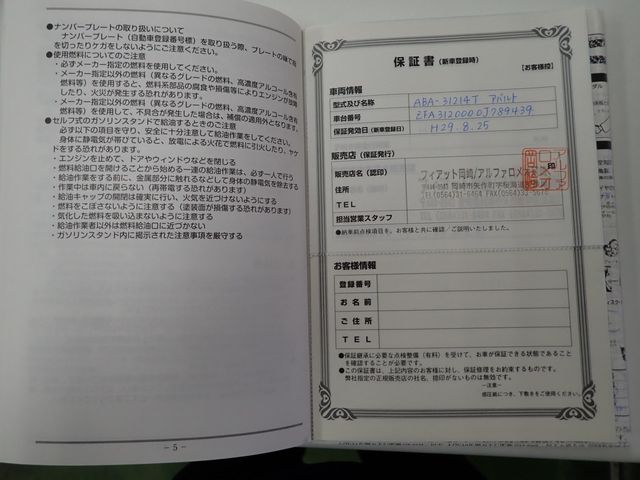 ●ナンバープレートの取り扱いについて
ナンバープレート（自動車登録番号標）を取り扱う際、プレートの縁で指
を切ったりケガをしないようにご注意ください。
●使用燃料についてのご注意
・必ずメーカー指定の燃料を使用してください。
・メーカー指定以外の燃料（異なるグレードの燃料、高濃度アルコール含有
燃料等）を使用すると、燃料系部品の腐食や損傷等によりエンジンが故障
したり、火災が発生する恐れがあります。
・メーカー指定以外の燃料（異なるグレードの燃料、高濃度アルコール含有
燃料等）を使用して、不具合が発生した場合は、補償の適用外となります。
●セルフ式のガソリンスタンドで給油するときのご注意
必ず以下の項目を守り、安全に十分注意して給油作業をしてください。
身体に静電気が帯びていると、放電による火花で燃料に引火したり、やけ
どをする恐れがあります。
・エンジンを止めて、ドアやウィンドウなどを閉じる
・燃料給油口を開けることから始める一連の給油作業は、必ず一人で行う
・給油作業をする前に、金属部分に触れるなどして身体の静電気を除去する
・作業中は車内に戻らない（再帯電する恐れがあります）
・給油キャップの開閉は確実に行い、火気を近づけないようにする
・燃料をこぼさないように注意する（塗装面が損傷する恐れがあります）
・気化した燃料を吸い込まないように注意する
・給油作業者以外は燃料給油口に近づかない
・ガソリンスタンド内に掲示された注意事項を厳守する
－5－
保証書（新車登録時）
【お客様控】
車両情報
型式及び名称 ABA-31214T アバルト
車台番号 ZFA3120000J789439
保証発効日（新車登録日） H29.8.25
販売店（保証発行）
販売店名（認印） フィアット岡崎/アルファロメオ
印
住所 岡崎市矢作町字桜海道
TEL TEL(0564)31-6464 FAX(0564)
担当営業スタッフ
●納車前点検項目を、お客様と共に確認／ご説明いたしました。
お客様情報
登録番号
お名前
ご住所
TEL
●保証継承に必要な点検整備（有料）を受けて、お車が保証できる状態であること
を確認することができます。
●この保証書は、上記内容のお客様に対し、保証修理をお約束するものです。
弊社指定の正規販売店の社名、捺印がないものは無効です。
－注意－
感圧紙につき、下敷きをご使用ください。